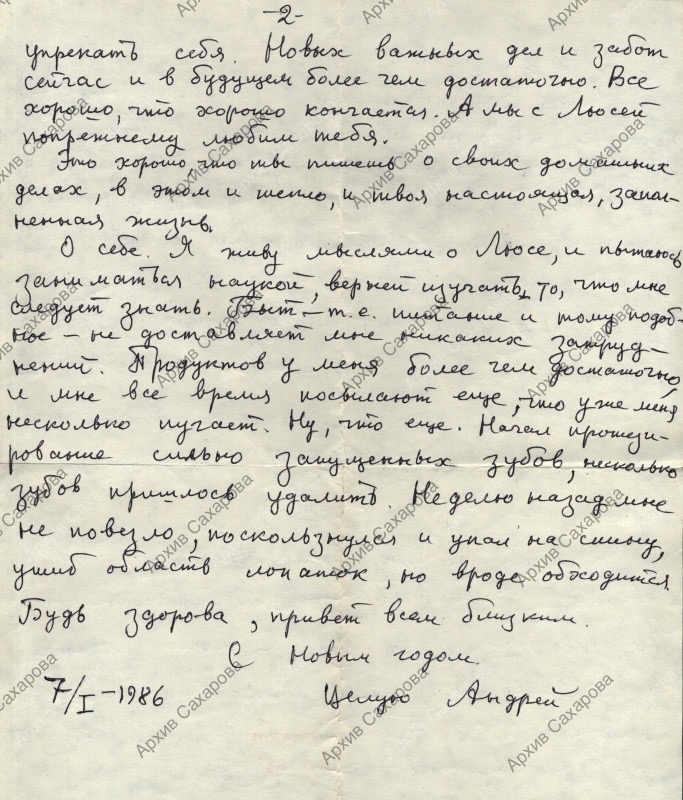 -2-
упрекать себя. Новых важных дел и забот
сейчас и в будущем более чем достаточно. Все
хорошо, что хорошо кончается. А мы с Люсей
попрежнему любим тебя.
Это хорошо что ты пишешь о своих домашних
делах, в этом и тепло, и твоя настоящая, запол-
ненная жизнь.
О себе. Я живу мыслями о Люсе, и пытаюсь
заниматься наукой, верней изучать то, что мне
следует знать. Быт – т.е. питание и тому подоб-
ное – не доставляет мне никаких затруд-
нений. Продуктов у меня более чем достаточно,
и мне все время посылают еще, что уже меня
несколько пугает. Ну, что еще. Начал протези-
рование сильно запущенных зубов, несколько
зубов пришлось удалить. Неделю назад мне
не повезло, поскользнулся и упал на спину,
ушиб область лопаток, но вроде обходится.
Будь здорова, привет всем близким.
С Новым годом.
7/I-1986 Целую Андрей
Архив Сахарова